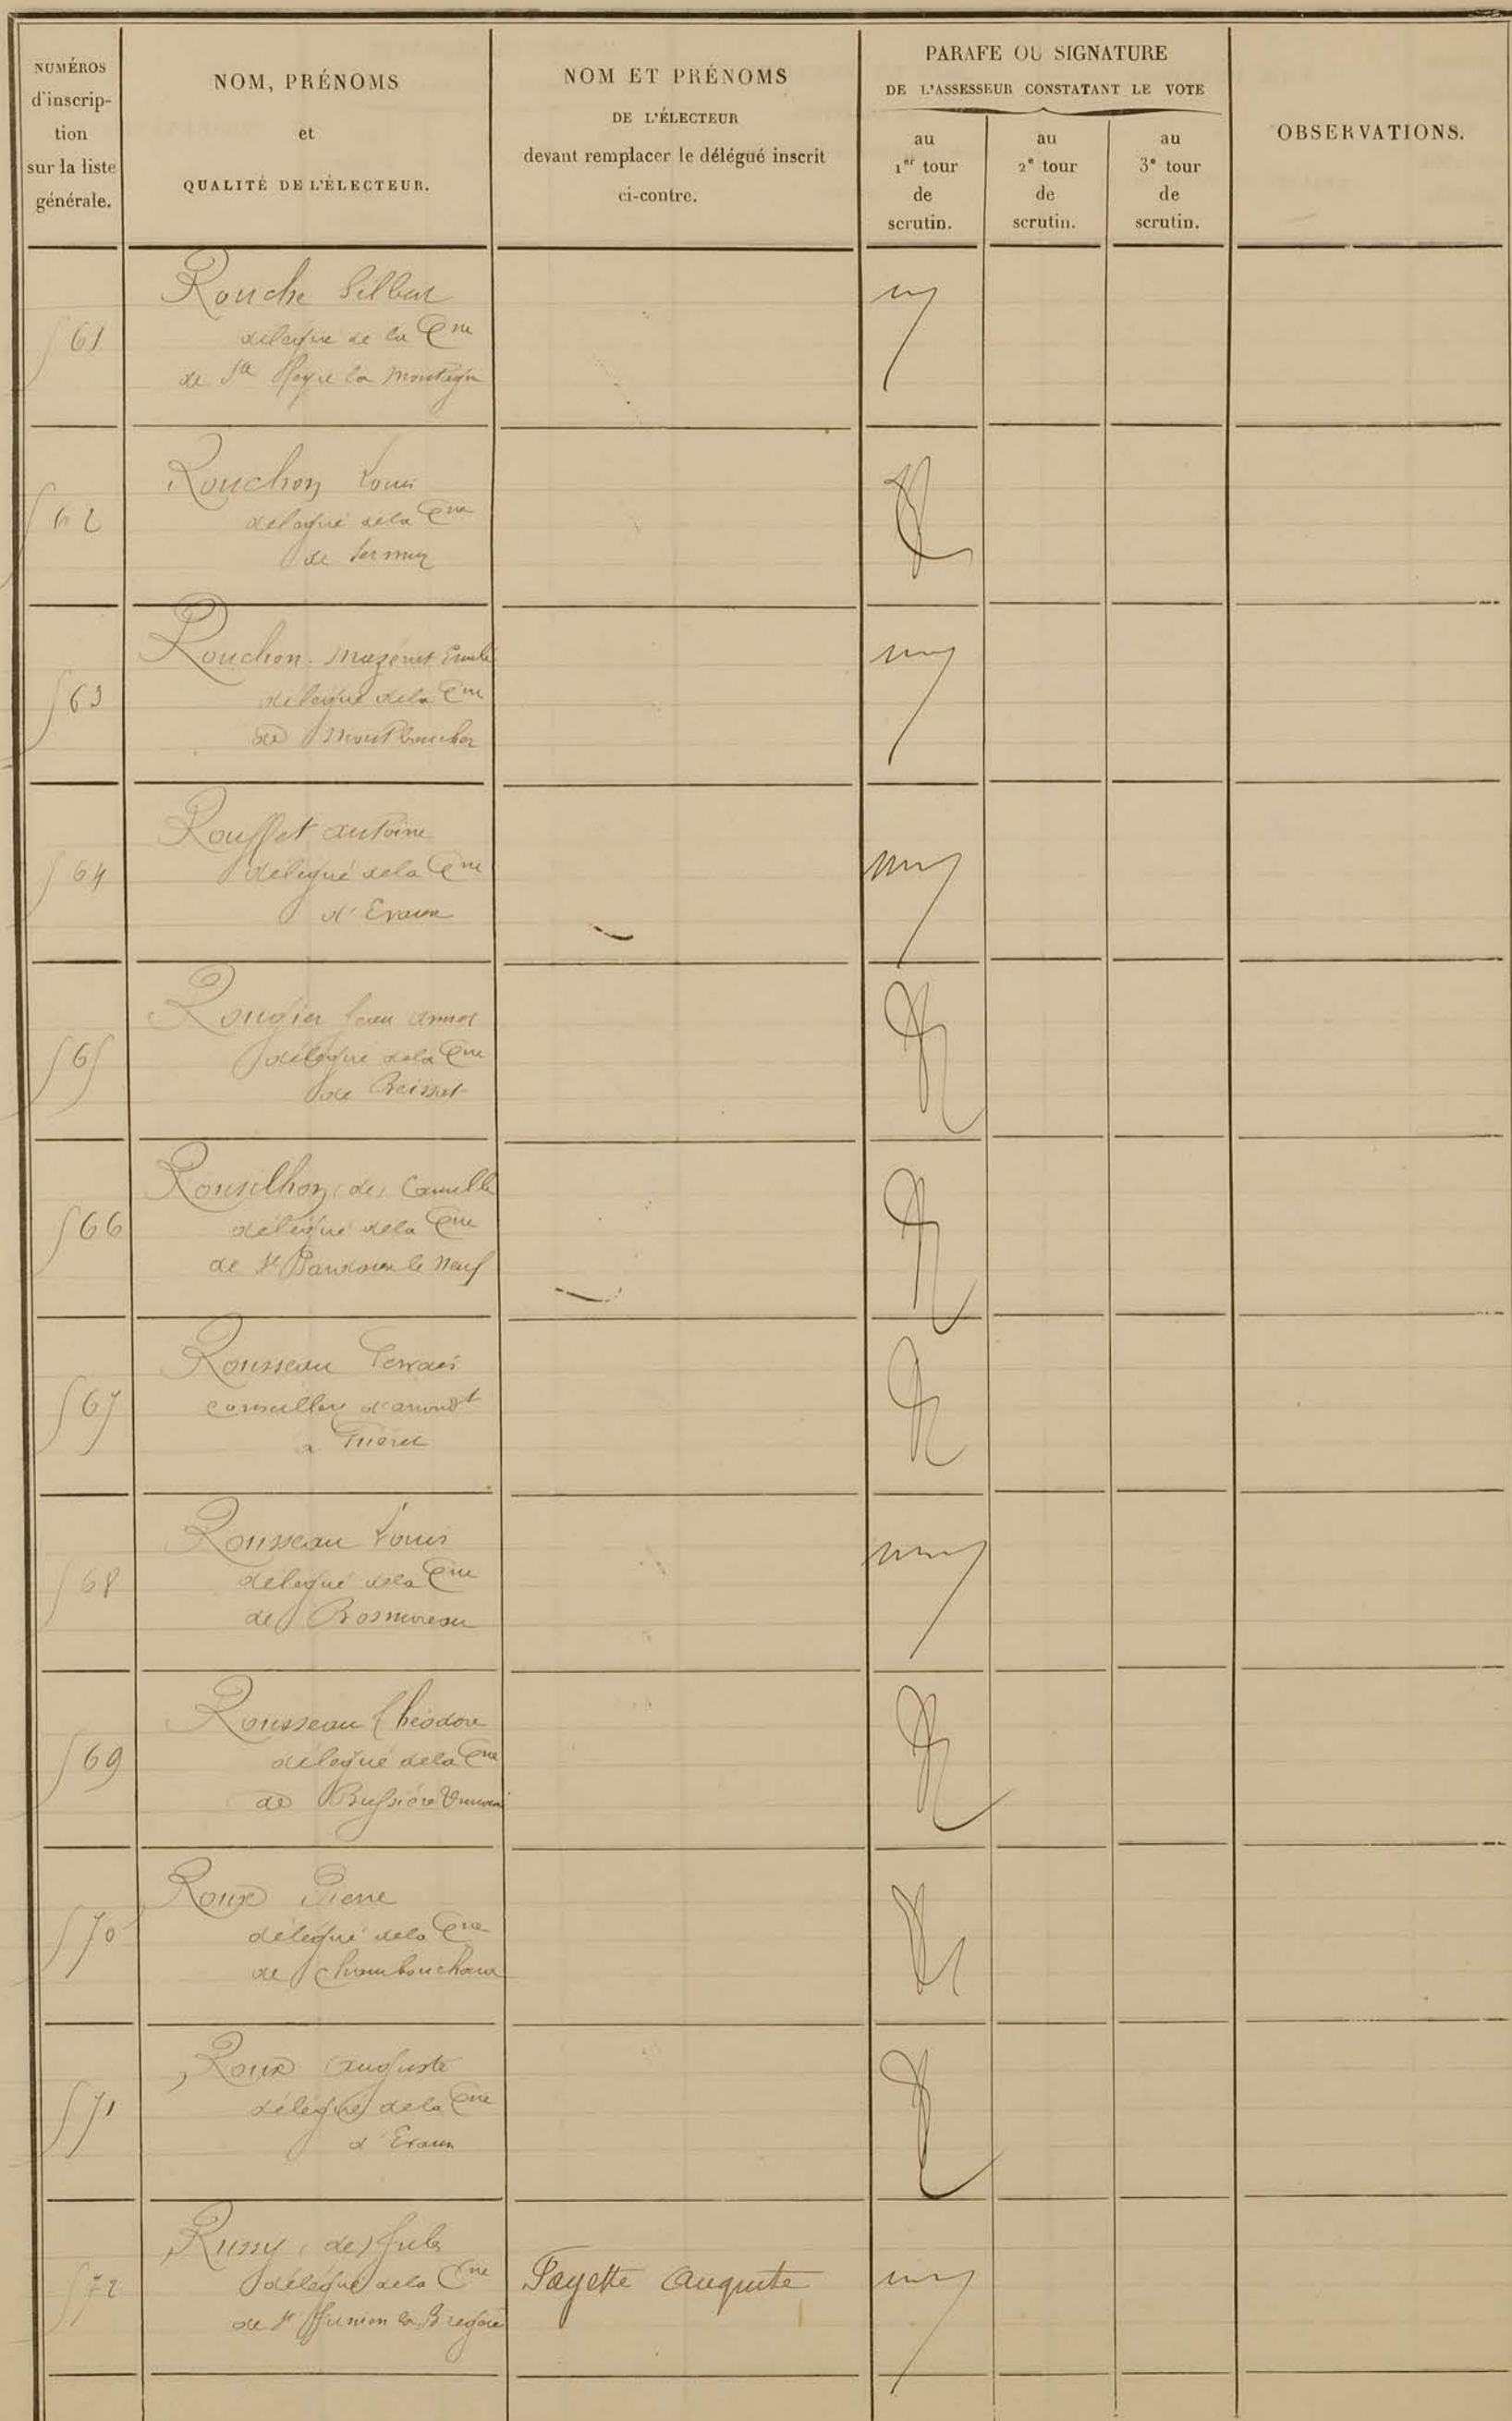 NUMÉROS
d'inscrip-
tion
sur la liste
générale.
NOM, PRÉNOMS
et
QUALITÉ DE L'ÉLECTEUR.
NOM ET PRÉNOMS
DE L'ÉLECTEUR
devant remplacer le délégué inscrit
ci-contre.
PARAFE OU SIGNATURE
DE L'ASSESSEUR CONSTATANT LE VOTE
au
1er tour
de
scrutin.
au
2e tour
de
scrutin.
au
3e tour
de
scrutin.
OBSERVATIONS.
561
Rouche Silbert
délégué de la Cne
de Ste Feyre la Montagne
562
Rouchon Louis
délégué de la Cne
de
563
Rouchon-Mazerat Emile
délégué de la Cne
de Montboucher
564
Rouffet Antoine
délégué de la Cne
d'Evaux
565
Rougier Jean Annet
délégué de la Cne
de Reissat
566
Rousilhon (de) Camille
délégué de la Cne
de St Pardoux le Neuf
567
Rousseau
conseiller d'arrondt
a Guéret
568
Rousseau Louis
délégué de la Cne
de Bosmoreau
569
Rousseau Théodore
délégué de la Cne
de Bussière Dunoise
570
Roux Pierre
délégué de la Cne
de Chambonchard
571
Roux Auguste
délégué de la Cne
d'Evaux
572
Russy (de) Jules
délégué de la Cne
de St Junien la Bregère
Fayette Auguste